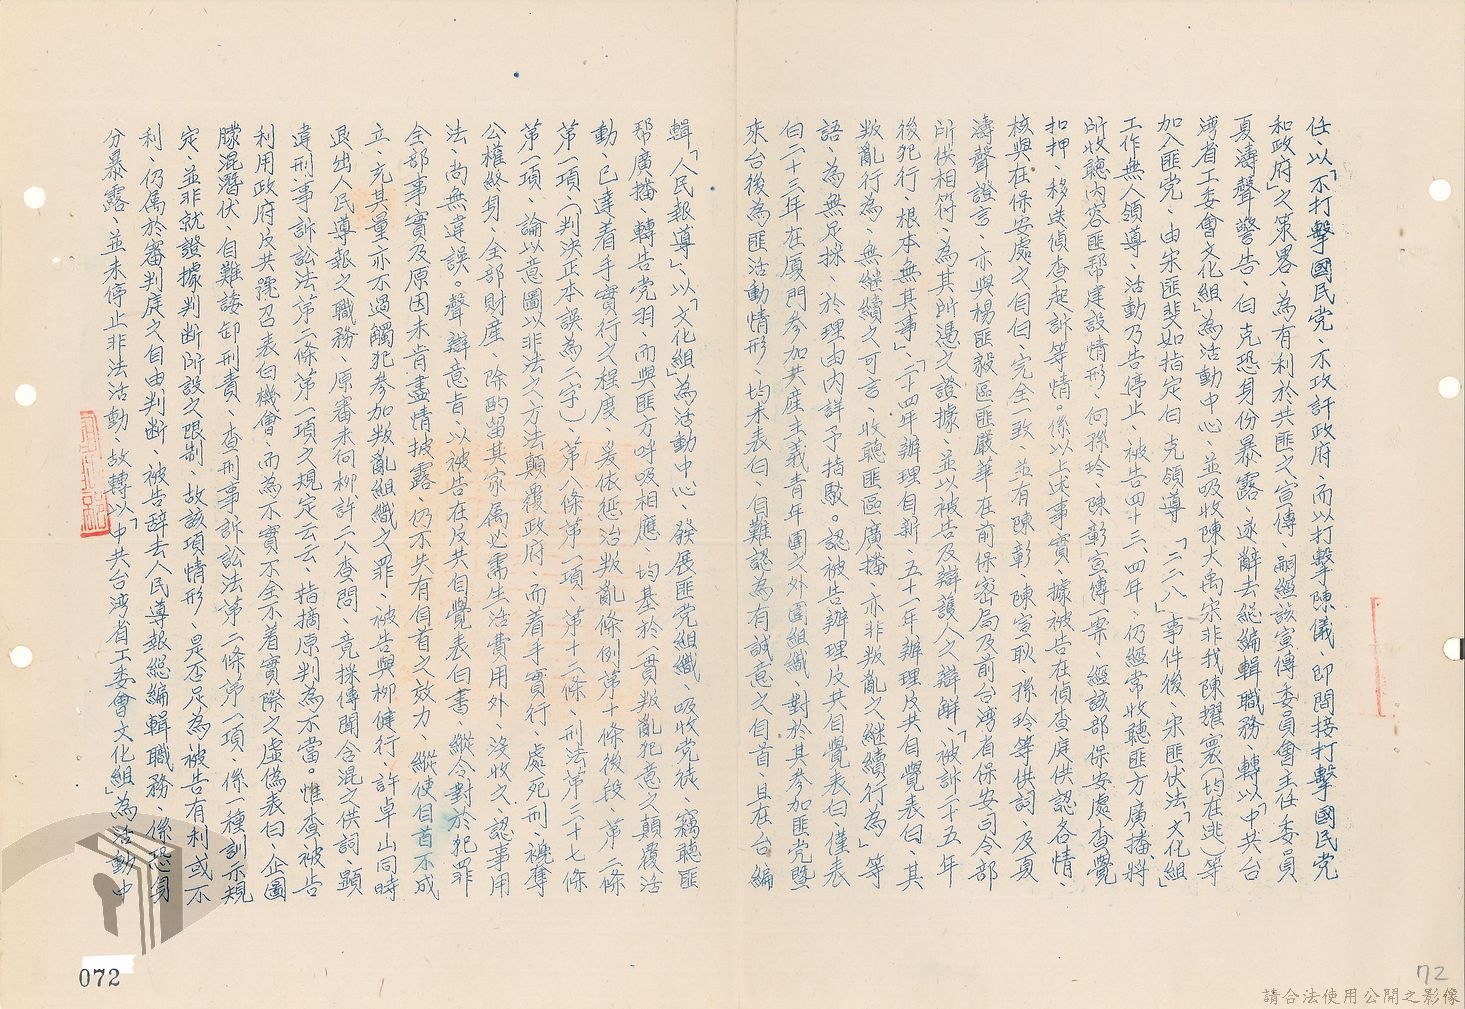 任、以「不打擊國民党、不攻訐政府、而以打擊陳儀、即間接打擊國民党
和政府」之策畧、為有利於共匪之宣傳、嗣經該宣傳委員會主任委員
夏濤聲警告、白克恐身份暴露、遂辭去總編輯職務、轉以「中共台
湾省工委會文化組」為活動中心、並吸收陳大禹宋非我陳耀寰(均在逃)等
加入匪党、由宋匪斐如指定白克領導、「二二八」事件後、宋匪伏法、「文化組」
工作無人領導、活動乃告停止、被告四十三、四年、仍經常收聽匪方廣播、將
所收聽內容匪帮建設情形、向孫玲、陳彰宣傳一案、經該部保安處查覺
扣押、移送偵查起訴等情。係以上述事實、據被告在偵查庭供認各情、
核與在保安處之自白、完全一致、並有陳彰、陳宣耿、孫玲等供詞、及夏
濤聲證言、亦與楊匪毅區匪嚴華在前保密局及前台湾省保安司令部
所供相符、為其所憑之證據、並以被告及辯護人之辯解、「被訴二十五年
後犯行、根本無其事」、「二十四年辦理自新、五十一年辦理反共自覺表白、其
叛亂行為、無継續之可言、收聽匪區廣播、亦非叛亂之継續行為」等
語、為無足採、於理由內詳予指駁。認被告辦理反共自覺表白、僅表
白二十三年在厦門參加共產主義青年團之外圍組織、對於其參加匪党暨
來台後為匪活動情形、均未表白、自難認為有誠意之自首、且在台編
輯「人民報導」、以「文化組」為活動中心、發展匪党組織、吸收党徒、竊聽匪
帮廣播、轉告党羽、而與匪方呼吸相應、均基於一貫叛亂犯意之顛覆活
動、已達着手實行之程度、爰依懲治叛亂條例第十條後段、第二條
第一項、(判決正本誤為二字)、第八條第一項、第十二條、刑法第三十七條
第一項、論以意圖以非法之方法顛覆政府、而着手實行、處死刑、褫奪
公權終身、全部財產、除酌留其家属必需生活費用外、沒收之、認事用
法、尚無違誤。聲辯意旨、以被告在反共自覺表白書、縱令對於犯罪
全部事實及原因未肯盡情披露、仍不失有自首之效力、縱使自首不成
立、充其量亦不過觸犯參加叛亂組織之罪、被告與柳健行、許卓山同時
退出人民導報之職務、原審未向柳許二人查問、竟採傳聞含混之供詞、顯
違刑事訴訟法第二條第一項之規定云云、指摘原判為不當。惟查被告
利用政府反共號召表白機會、而為不實不全不着實際之虛偽表白、企圖
朦混潛伏、自難諉卸刑責、查刑事訴訟法第二條第一項、係一種訓示規
定、並非就證據判断所設之限制、故該項情形、是否足為被告有利或不
利、仍属於審判庭之自由判断、被告辞去人民導報總編輯職務、係恐身
分暴露、並未停止非法活動、故轉以「中共台湾省工委會文化組」為活動中
072
72
請合法使用公開之影像